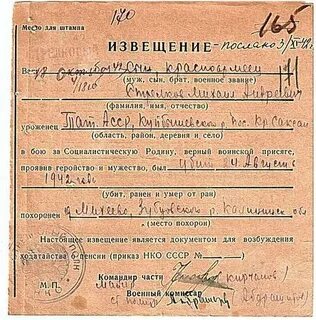 170
Место для штампа
165
ИЗВЕЩЕНИЕ
Ваш
красноармеец
(муж, сын, брат, военное звание)
Михаил Андреевич
(фамилия, имя, отчество)
уроженец Тат. АССР, Куйбышевский р. пос. Кр.
(область, район, деревня и село)
в бою за Социалистическую Родину, верный воинской присяге,
проявив геройство и мужество, был убит 4 Августа
1942 года
(убит, ранен и умер от ран)
похоронен д. Михеево, Зубцовский р. Калининск. обл
(место похорон)
Настоящее извещение является документом для возбуждения
ходатайства о пенсии (приказ НКО СССР №
Командир части
М. П.
Майор
Военный комиссар